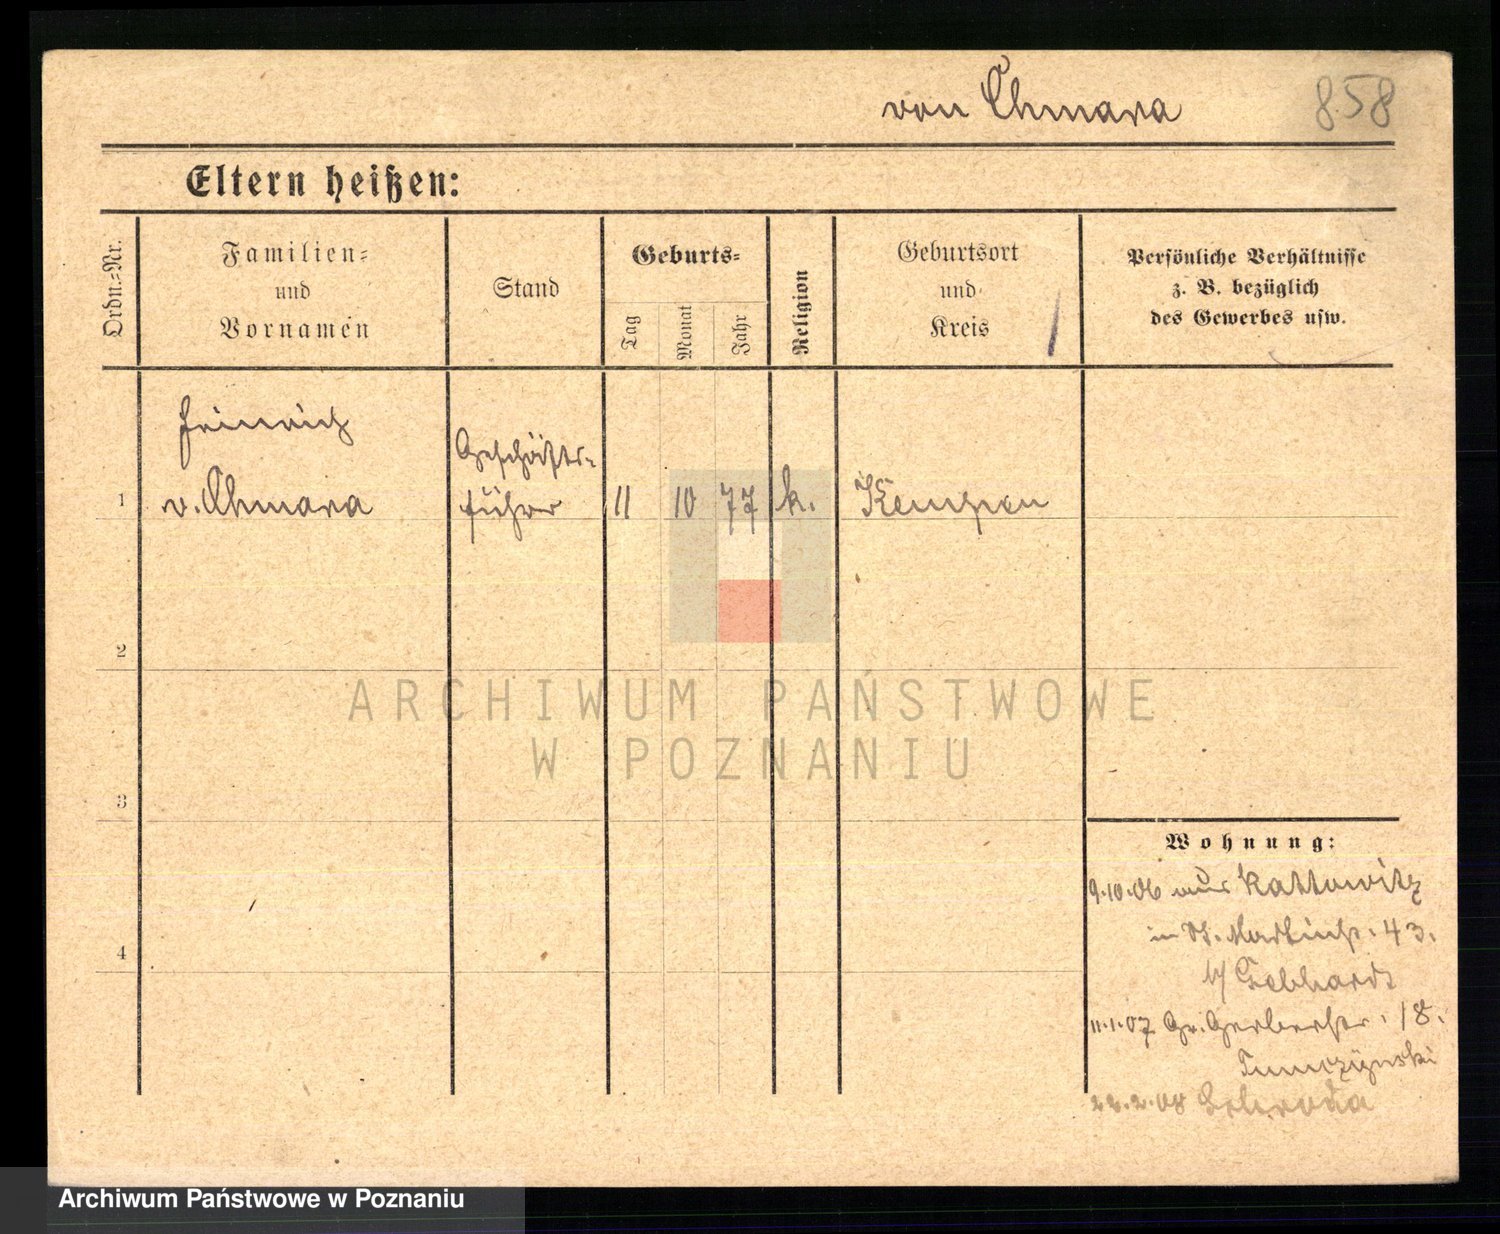 von Chmara 858
Eltern heißen:
Ordn.=Nr.
Familien=
und
Vornamen
Stand
Geburts=
Tag
Monat
Jahr
Religion
Geburtsort
und
Kreis
Persönliche Verhältnisse
z. B. bezüglich
des Gewerbes usw.
Heinrich
Geschäfts-
1 v. Chmara führer 11 10 77 k. Kempen
2
3
4
Wohnung:
9.10.06 aus Kattowitz
in St. Martinstr. 43.
b/ Gebhardt
11.1.07 Gr. Gerberstr. 18.
Schroda
ARCHIWUM PAŃSTWOWE
W POZNANIU
Archiwum Państwowe w Poznaniu